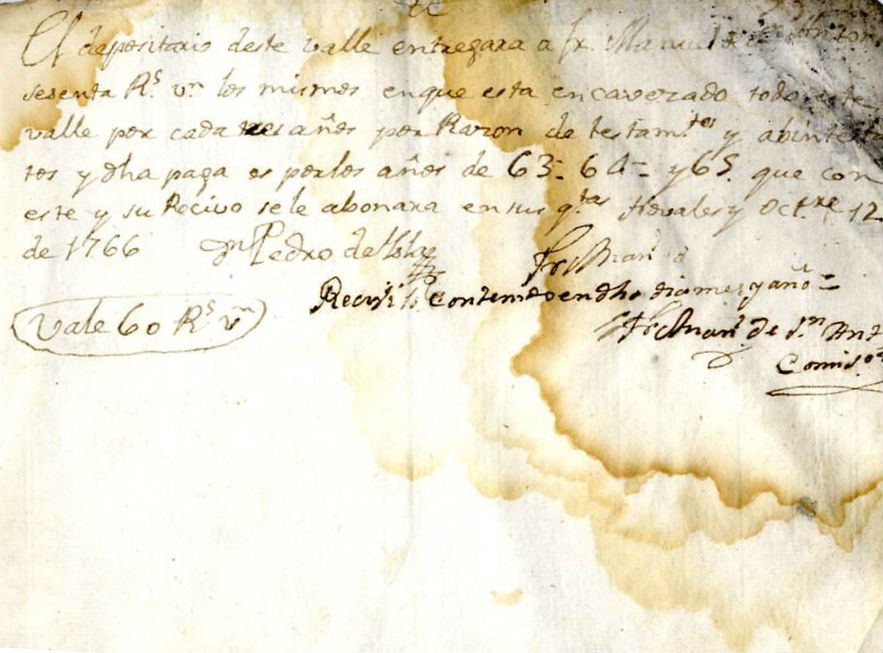 El depositario deste valle entregara a fr. Manuel
sesenta Rs. vn. los mismos en que esta encavezado todo este
valle por cada tres años por Razon de testamtos. y abintesta
tos y dha paga es por los años de 63= 64= y 65. que con
este y su Recivo se le abonara en sus qtas. y Octre. 12
de 1766 Dn Pedro de Isla
Fr. Man.l d
Recivi lo Contenido en dho dia mes y año=
Fr. Man.l de S.n Ant
Comis.o
Vale 60 Rs. vn